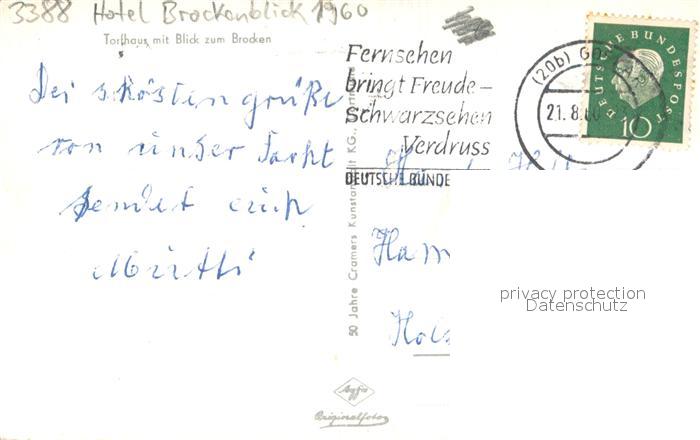 3388 Hotel Brockenblick 1960
Torfhaus mit Blick zum Brocken
Fernsehen
bringt Freude –
Schwarzsehen
Verdruss
DEUTSCHE BUNDE
(20b) Gos
21.8.60
DEUTSCHE BUNDESPOST
10
Dei schösten grüße
von unser Farht
sendet euch
Mutti
Ham
Hols
50 Jahre Cramers Kunstanstalt KG., Dortmund
privacy protection
Datenschutz
Agfa
Originalfoto